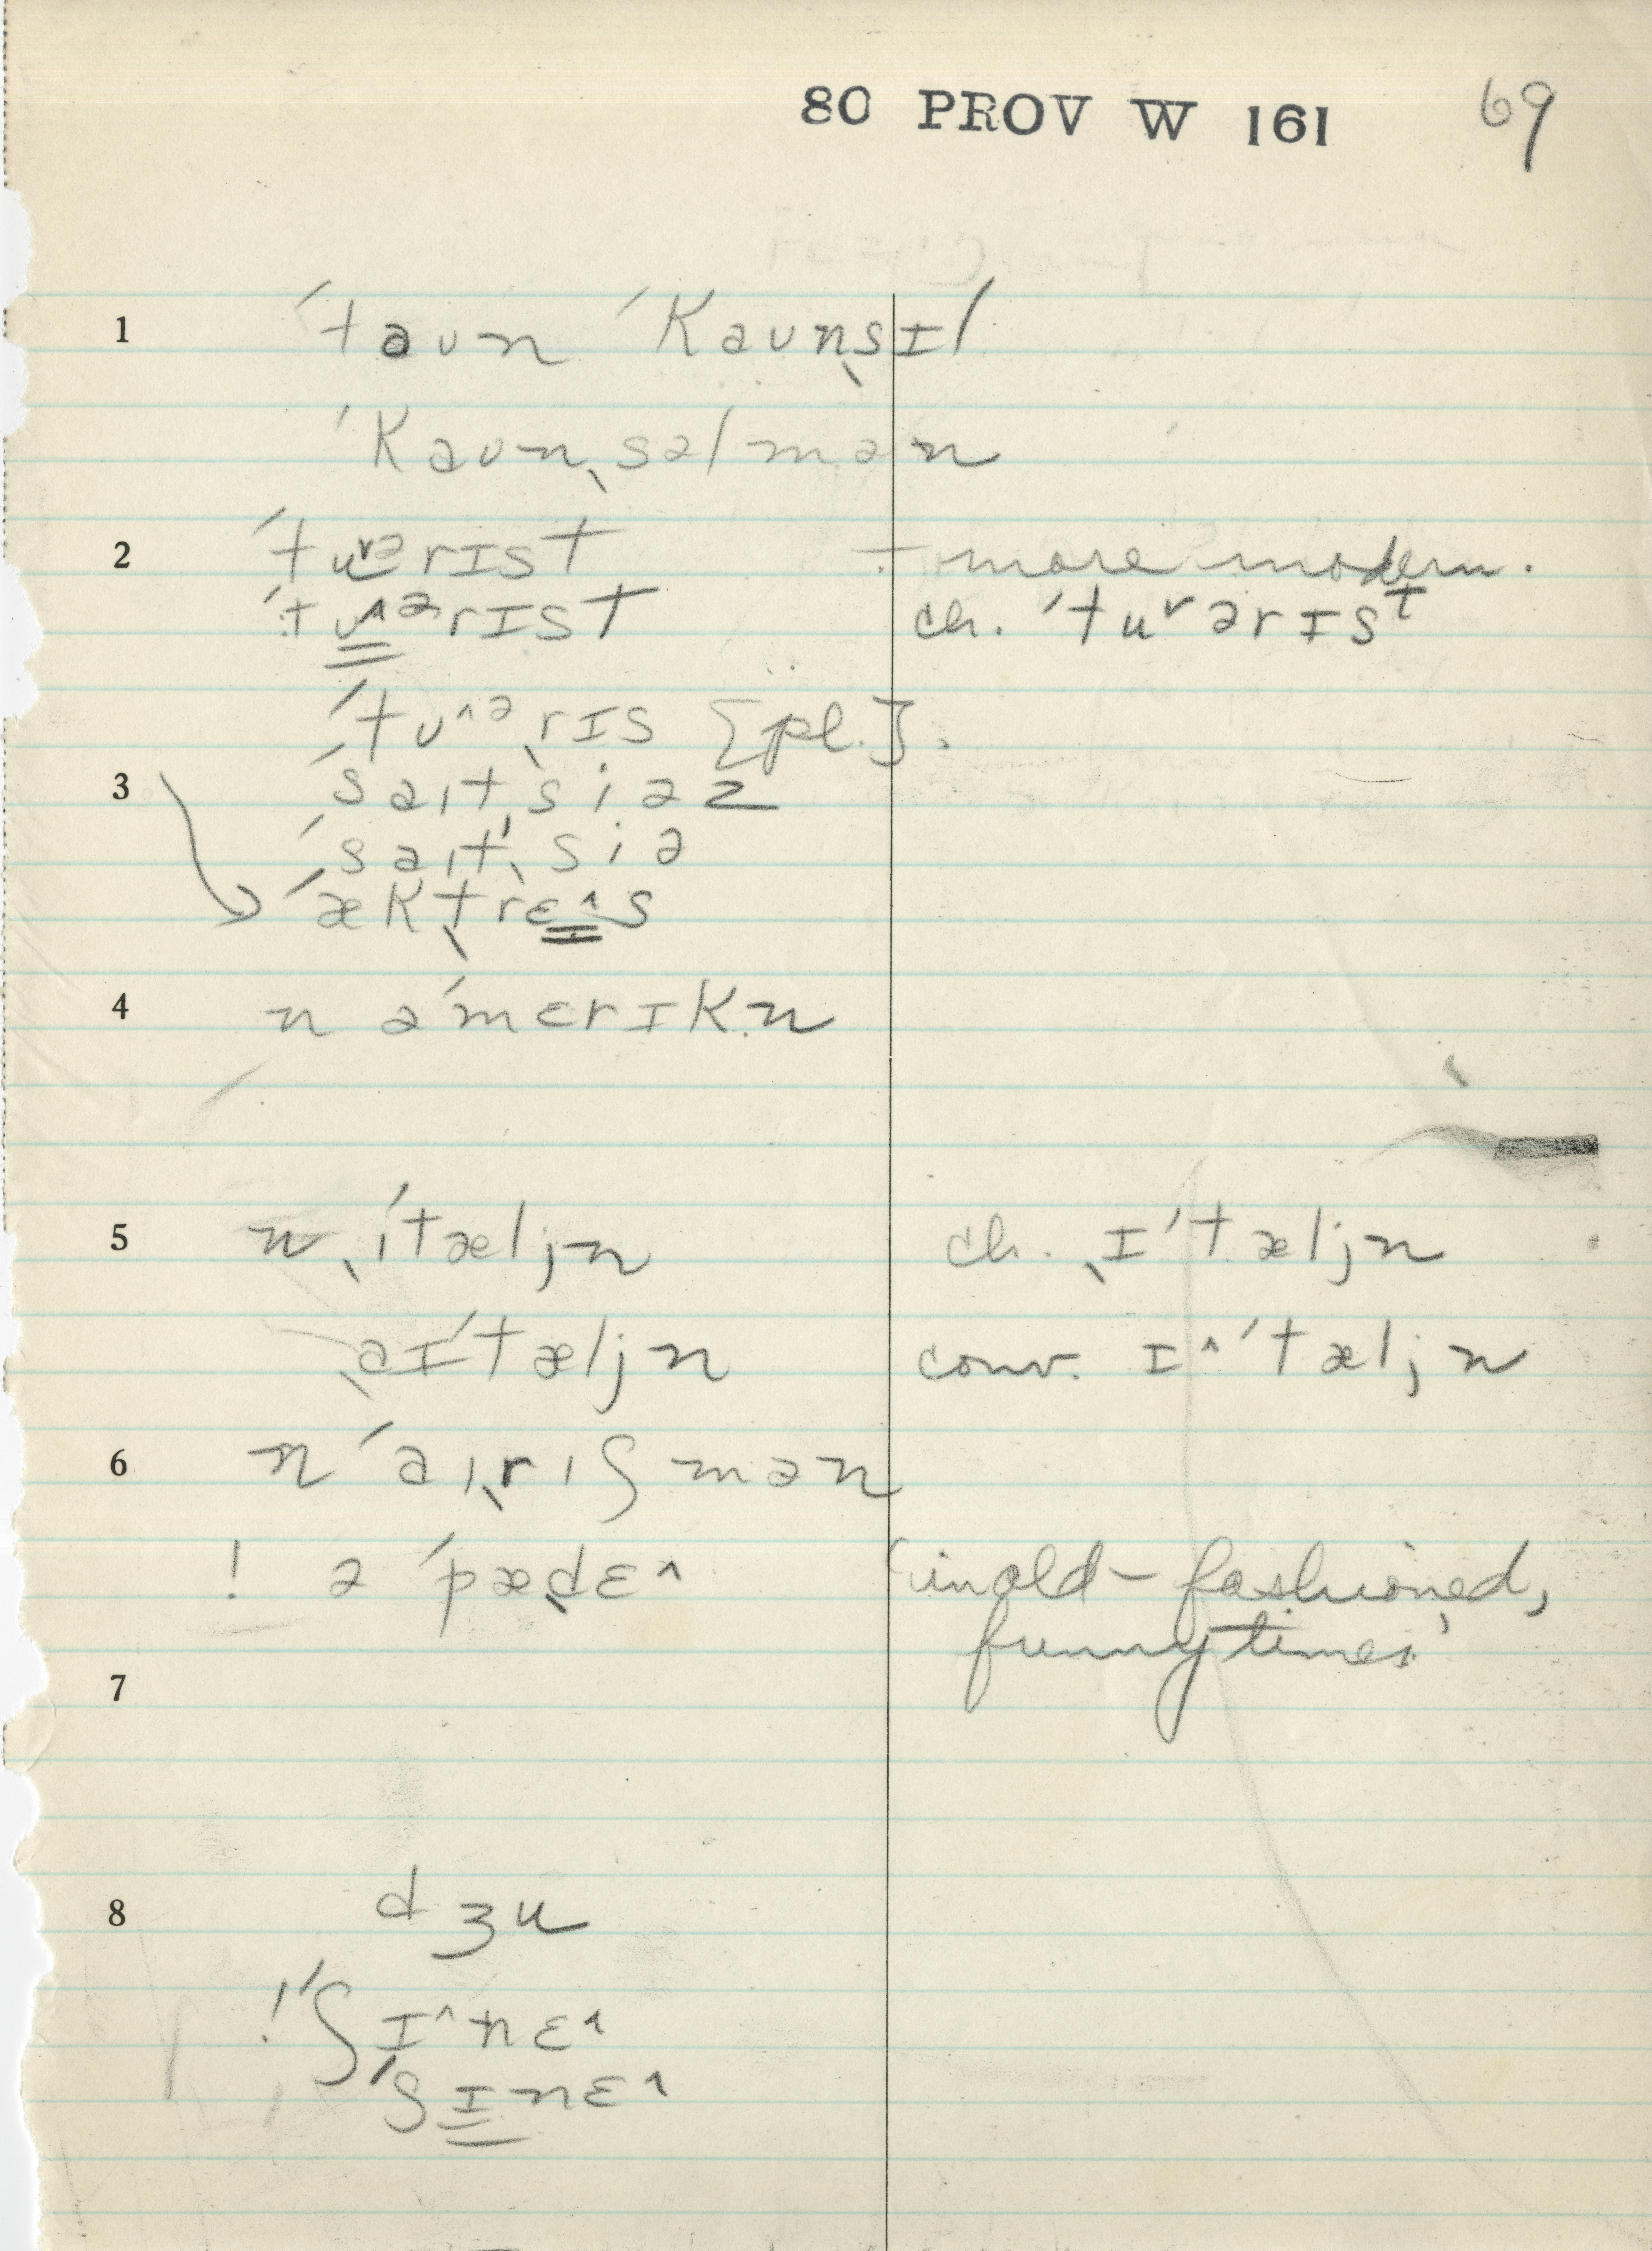 80 PROV W 161 69
1 ˈtaʊn ˈkaʊnˌsɪl
ˈkaʊnˌsəlmən
2 ˈtuᵛᵊrɪst ÷ more modern.
ˈtʊ^ᵊrɪst ch. ˈtuᵛərɪsᵗ
ˈtʊ^ᵊˌrɪs [pl.].
3 ˈsaɪtˌsiəz
ˈsaɪtˌsiə
ˈæktˌrɛ^s
4 n əˈmɛrɪkn
5 n ˌiˈtæljn ch. ˌɪˈtæljn
ˌaɪˈtæljn conv. ɪ^ˈtæljn
6 n ˈaɪˌrɪʃmən
! ə ˈpæˌdɛ^ ‘in old-fashioned,
funny times’
7
8 dʒu
! ˈʃɪ^nɛ^
ˈʃɪnɛ^